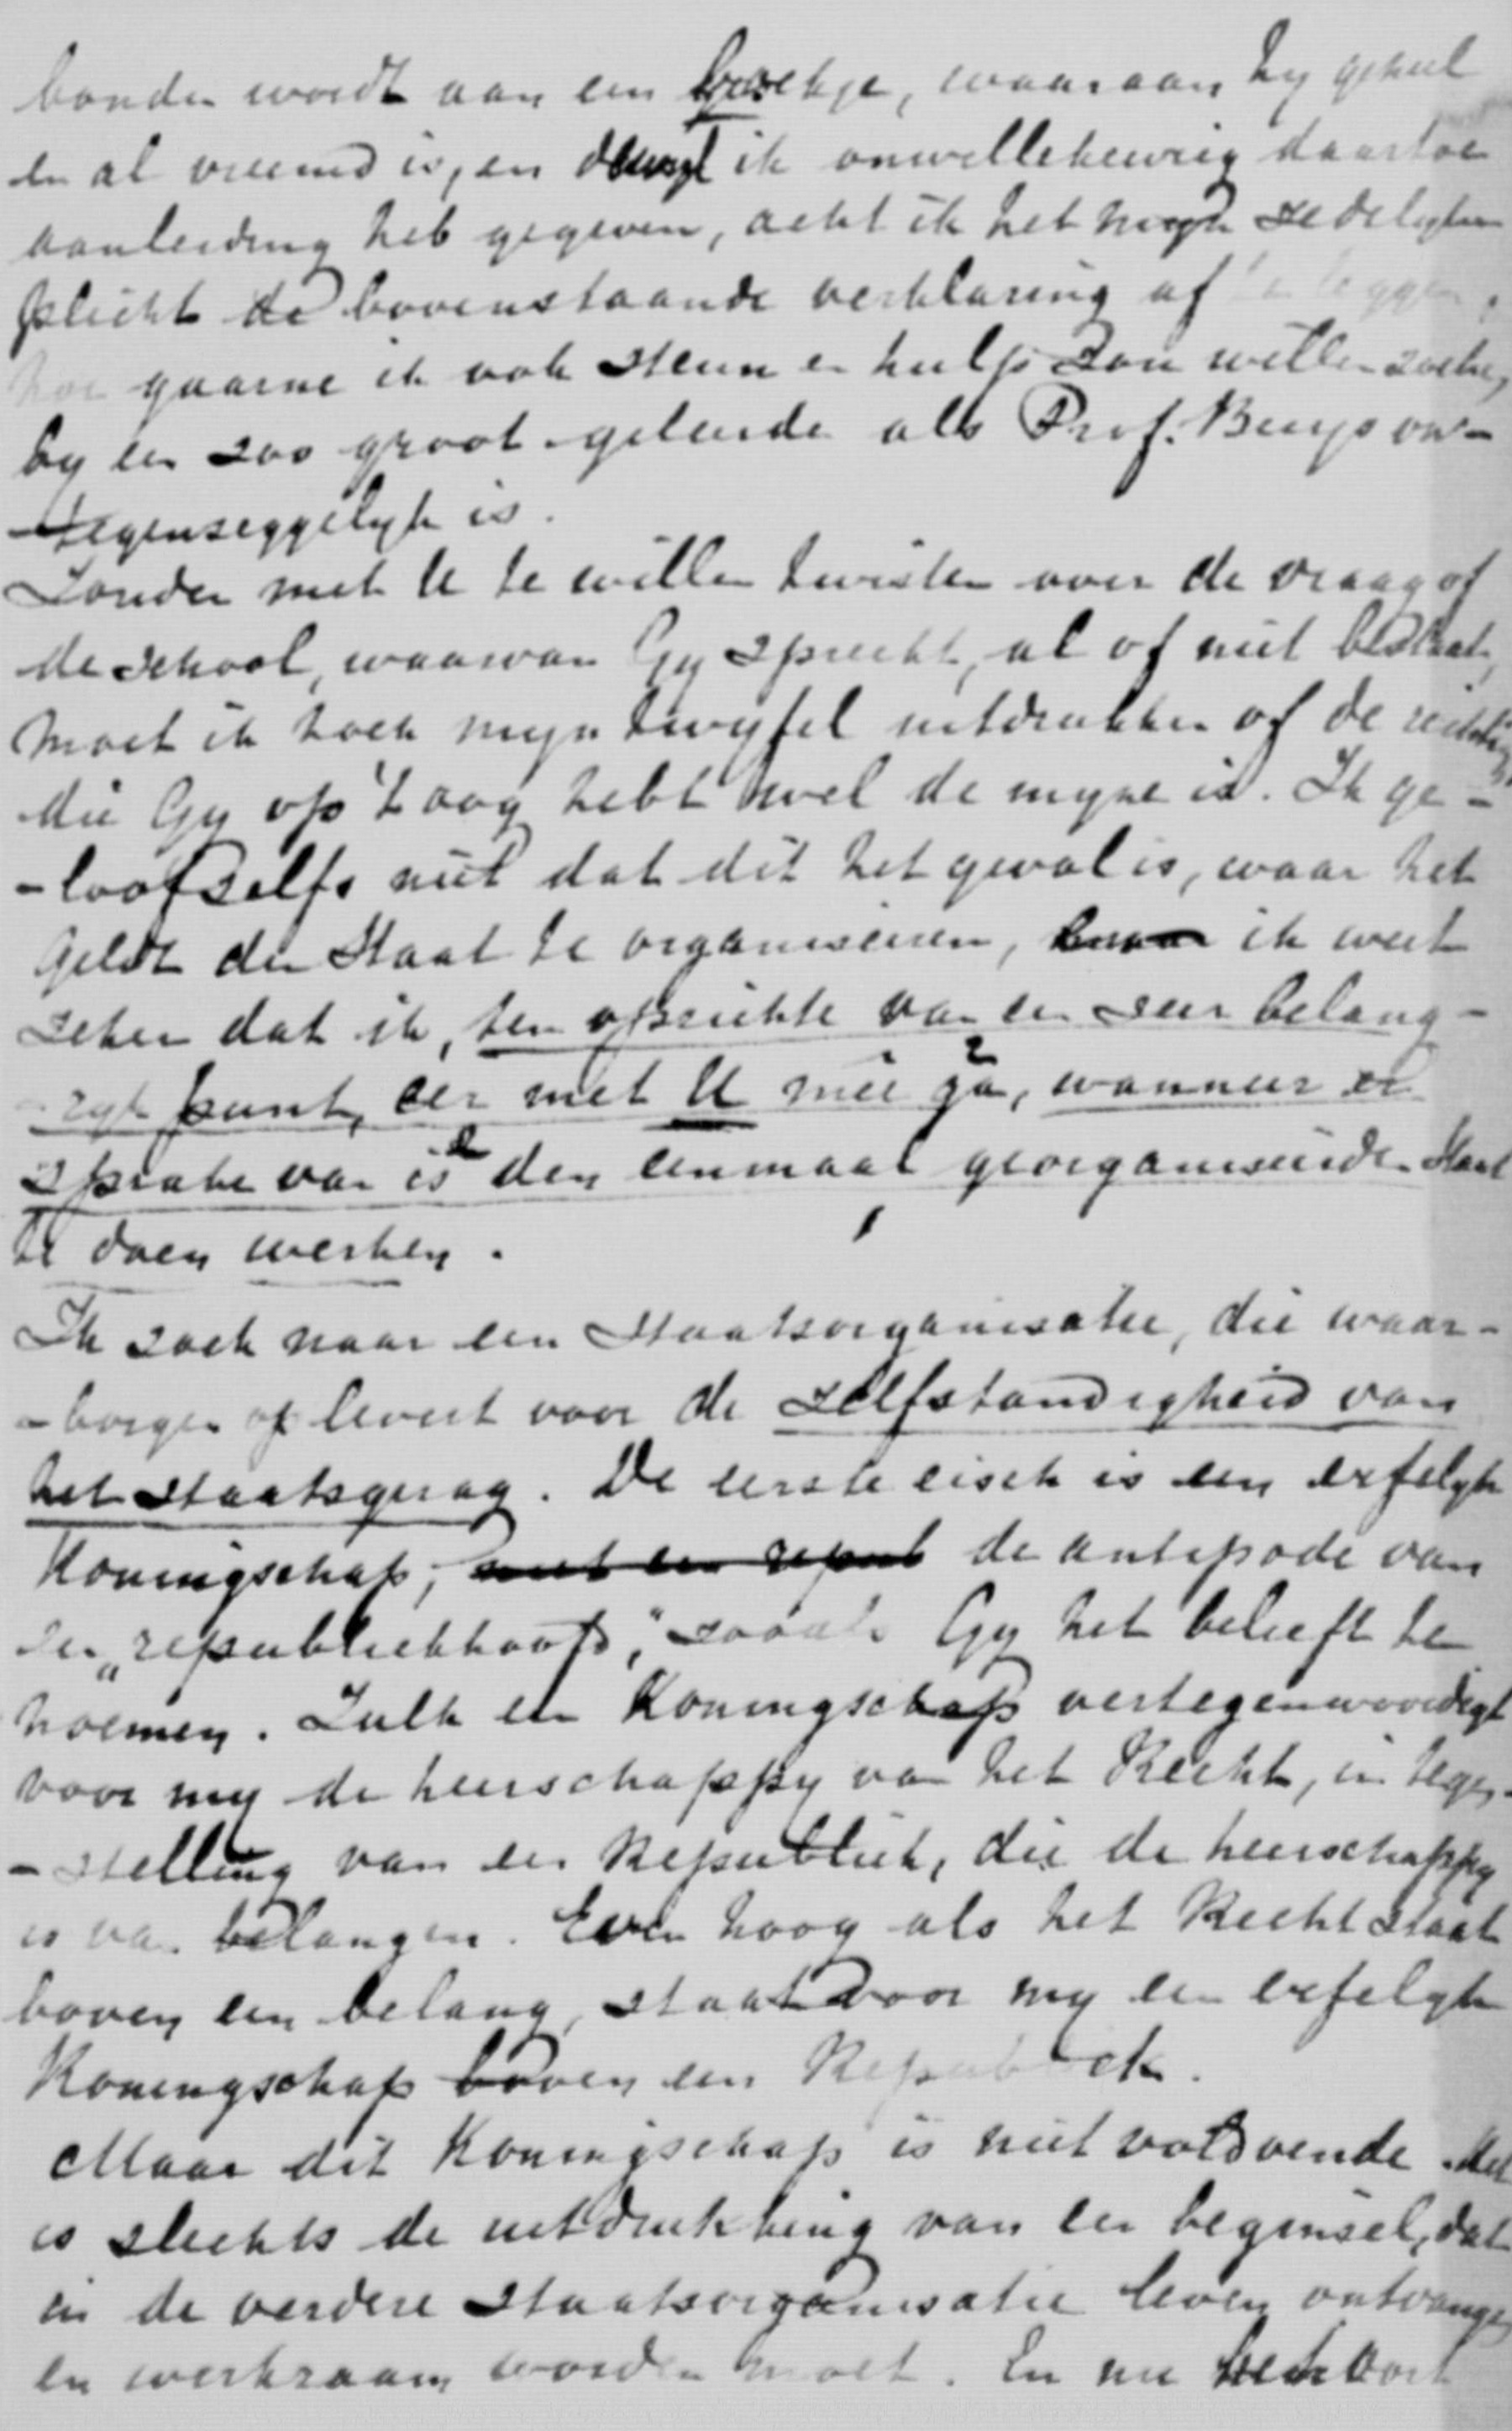 bonden wordt aan een boekje, waaraan hy geheel
en al vreemd is, en dewyl ik onwillekeurig daartoe
aanleiding heb gegeven, acht ik het myn zedelyken
plicht de bovenstaande verklaring af te leggen,
hoe gaarne ik ook steun en hulp zou willen zoeken,
by een zoo groot geleerde als Prof. Buys on-
-tegenzeggelyk is.
Zonder met U te willen twisten over de vraag of
de school, waarvan Gy spreekt, al of niet bestaat,
moet ik toch myn twyfel uitdrukken of de richting
die Gy op 't oog hebt wel de myne is. Ik ge-
-loof zelfs niet dat dit het geval is, waar het
geldt den Staat te organiseeren, maar ik weet
zeker dat ik, ten opzichte van een zeer belang-
-ryk punt, eer met U mee ga, wanneer er
sprake van is den eenmaal georganiseerden Staat
te doen werken.
Ik zoek naar een Staatsorganisatie, die waar-
-borgen oplevert voor de zelfstandigheid van
het staatsgezag. De eerste eisch is een erfelyk
Koningschap; niet een repub de antipode van
een „republiekhoofd," zooals Gy het belieft te
noemen. Zulk een Koningschap vertegenwoordigt
voor my de heerschappy van het Recht, in tegen-
-stelling van een Republiek, die de heerschappy
is van belangen. Even hoog als het Recht staat
boven een belang, staat voor my een erfelyk
Koningschap boven een Republiek.
Maar dit Koningschap is niet voldoende. Het
is slechts de uitdrukking van een beginsel, dat
in de verdere Staatsorganisatie leven ontvangen
en werkzaam worden moet. En nu